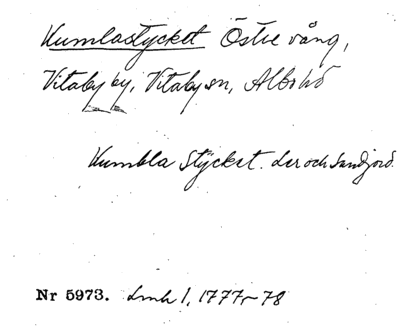 Kumlastycket Östre vång,
Vitaby by, Vitaby sn, Albo hd
Kumbla Stÿcket. ler och Sandjord.
Nr 5973. Lmh 1, 1777–78